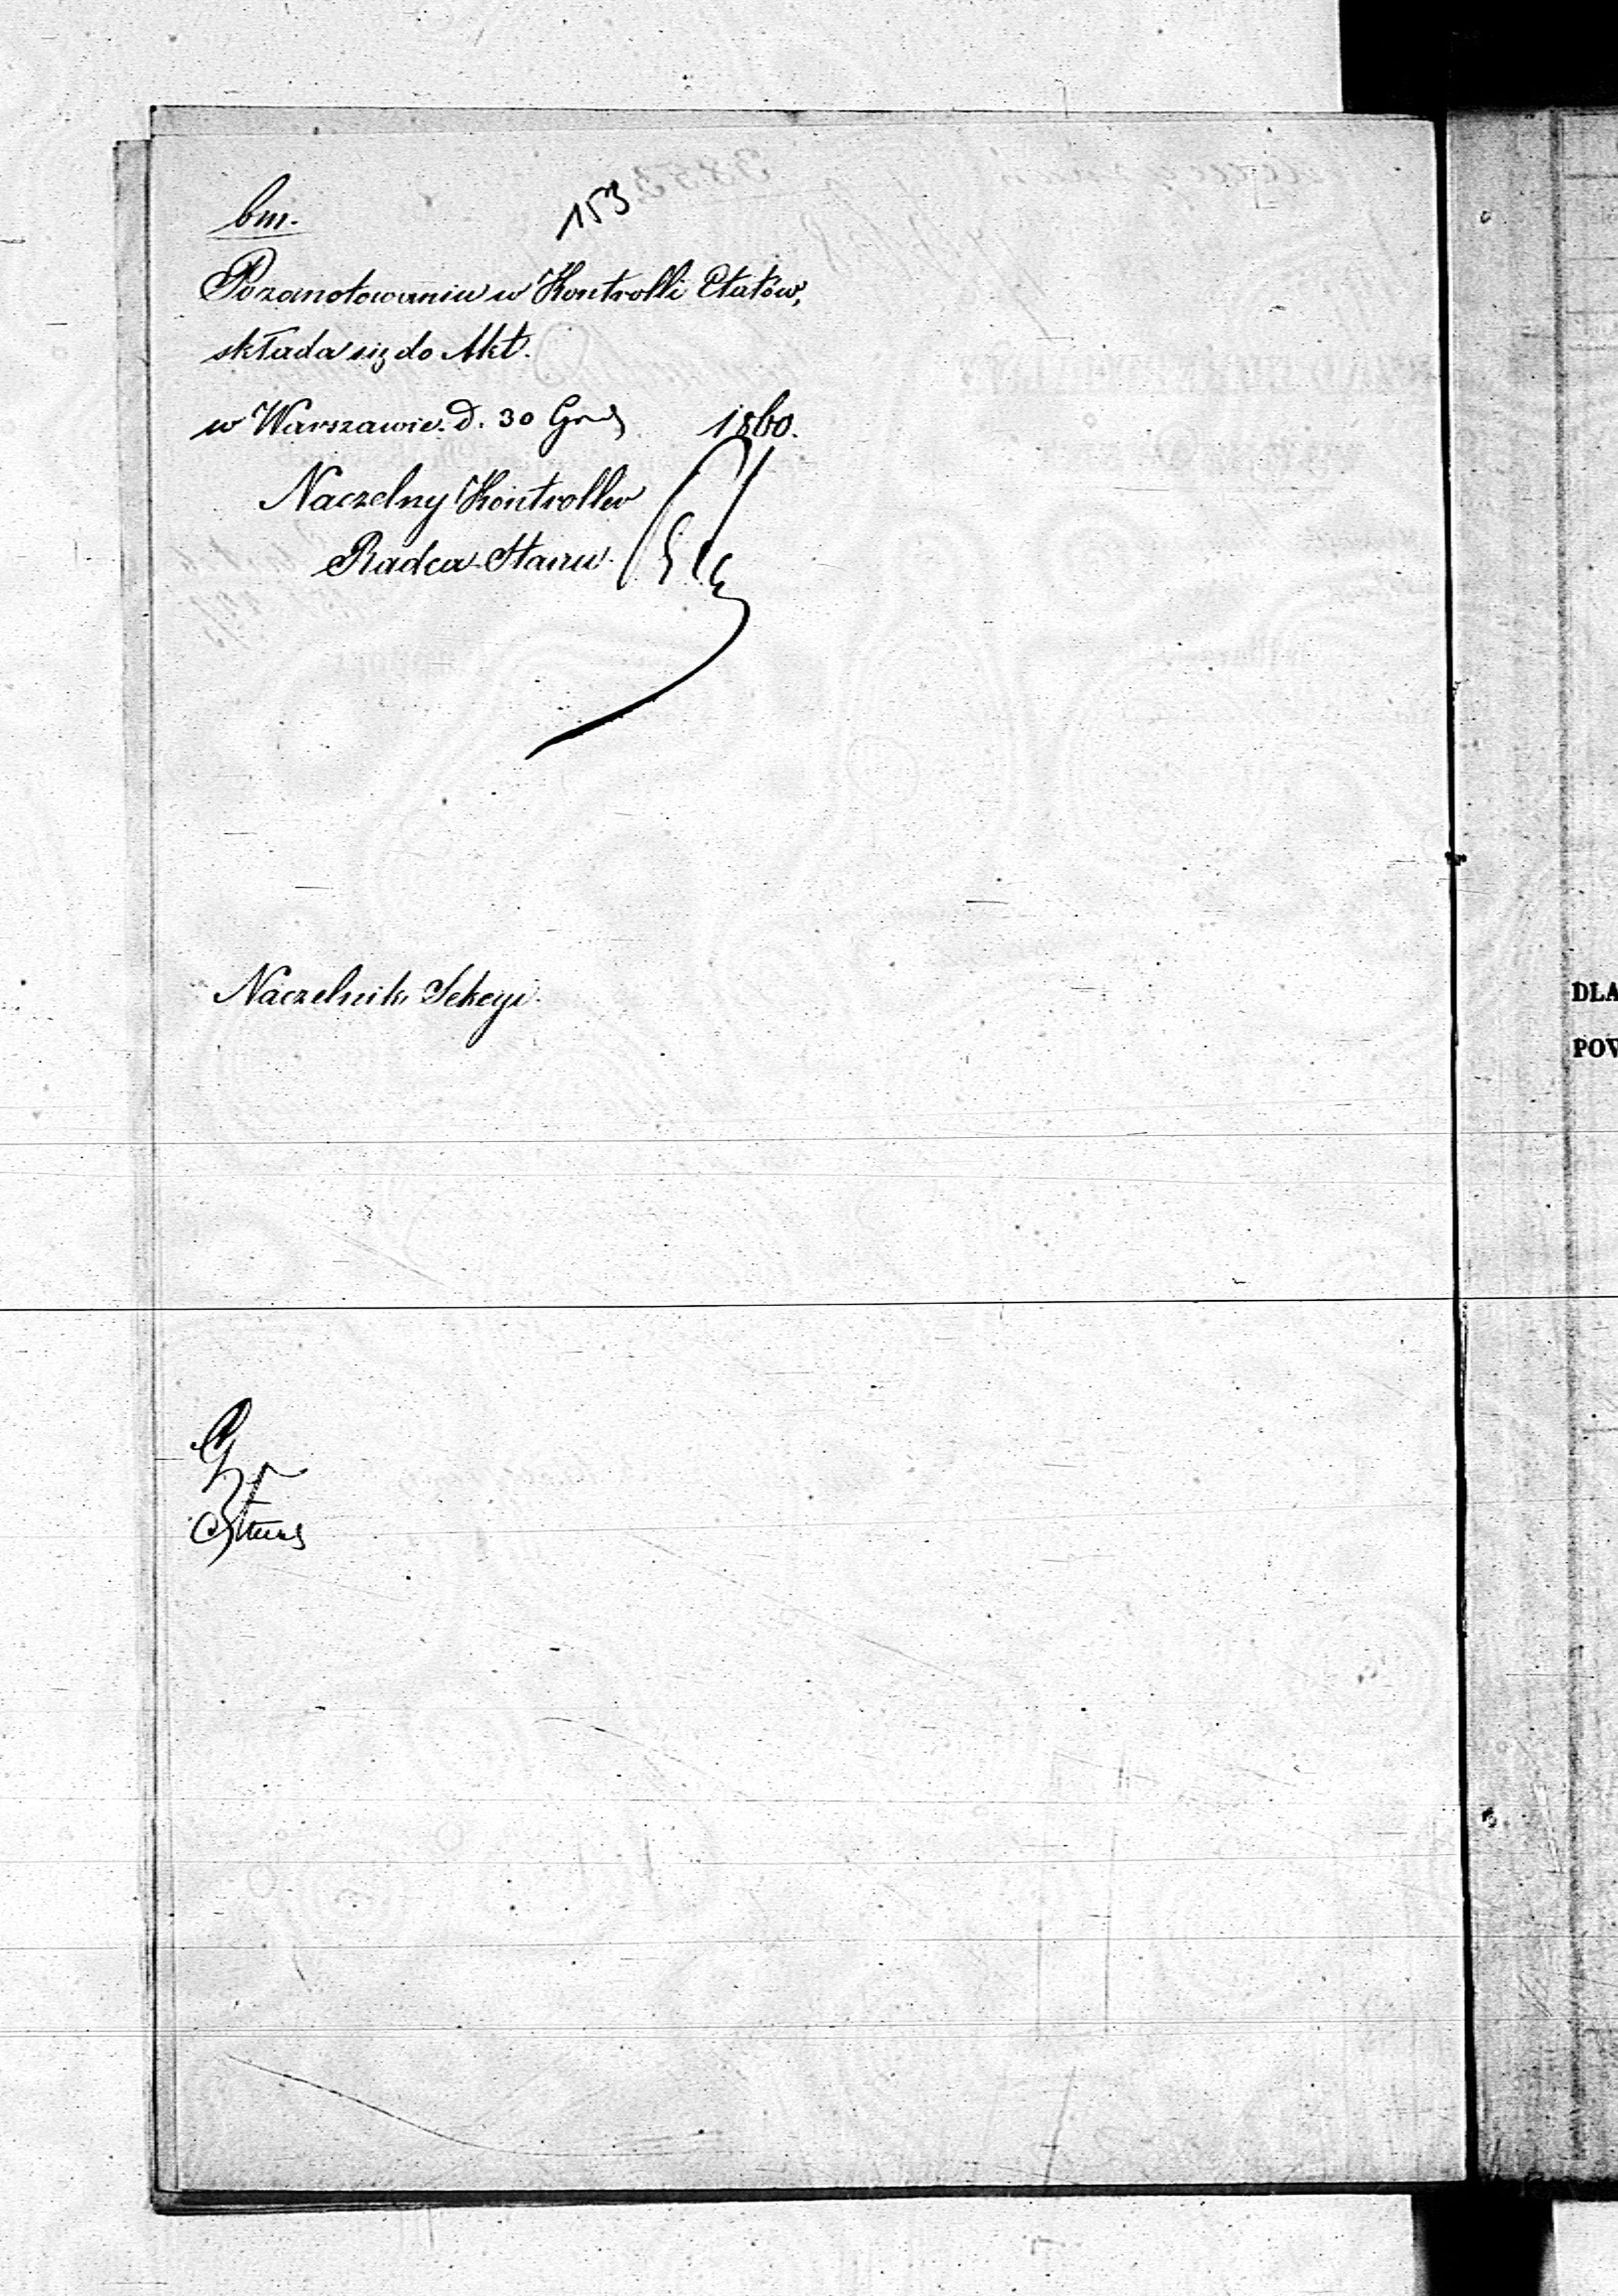 bm.
153
Po zanotowaniu w Kontrolli Etatów,
składa się do Akt.
w Warszawie d. 30 Grud 1860.
Naczelny Kontroller
Radca Stanu.
Naczelnik Sekcyi.
DLA
POW